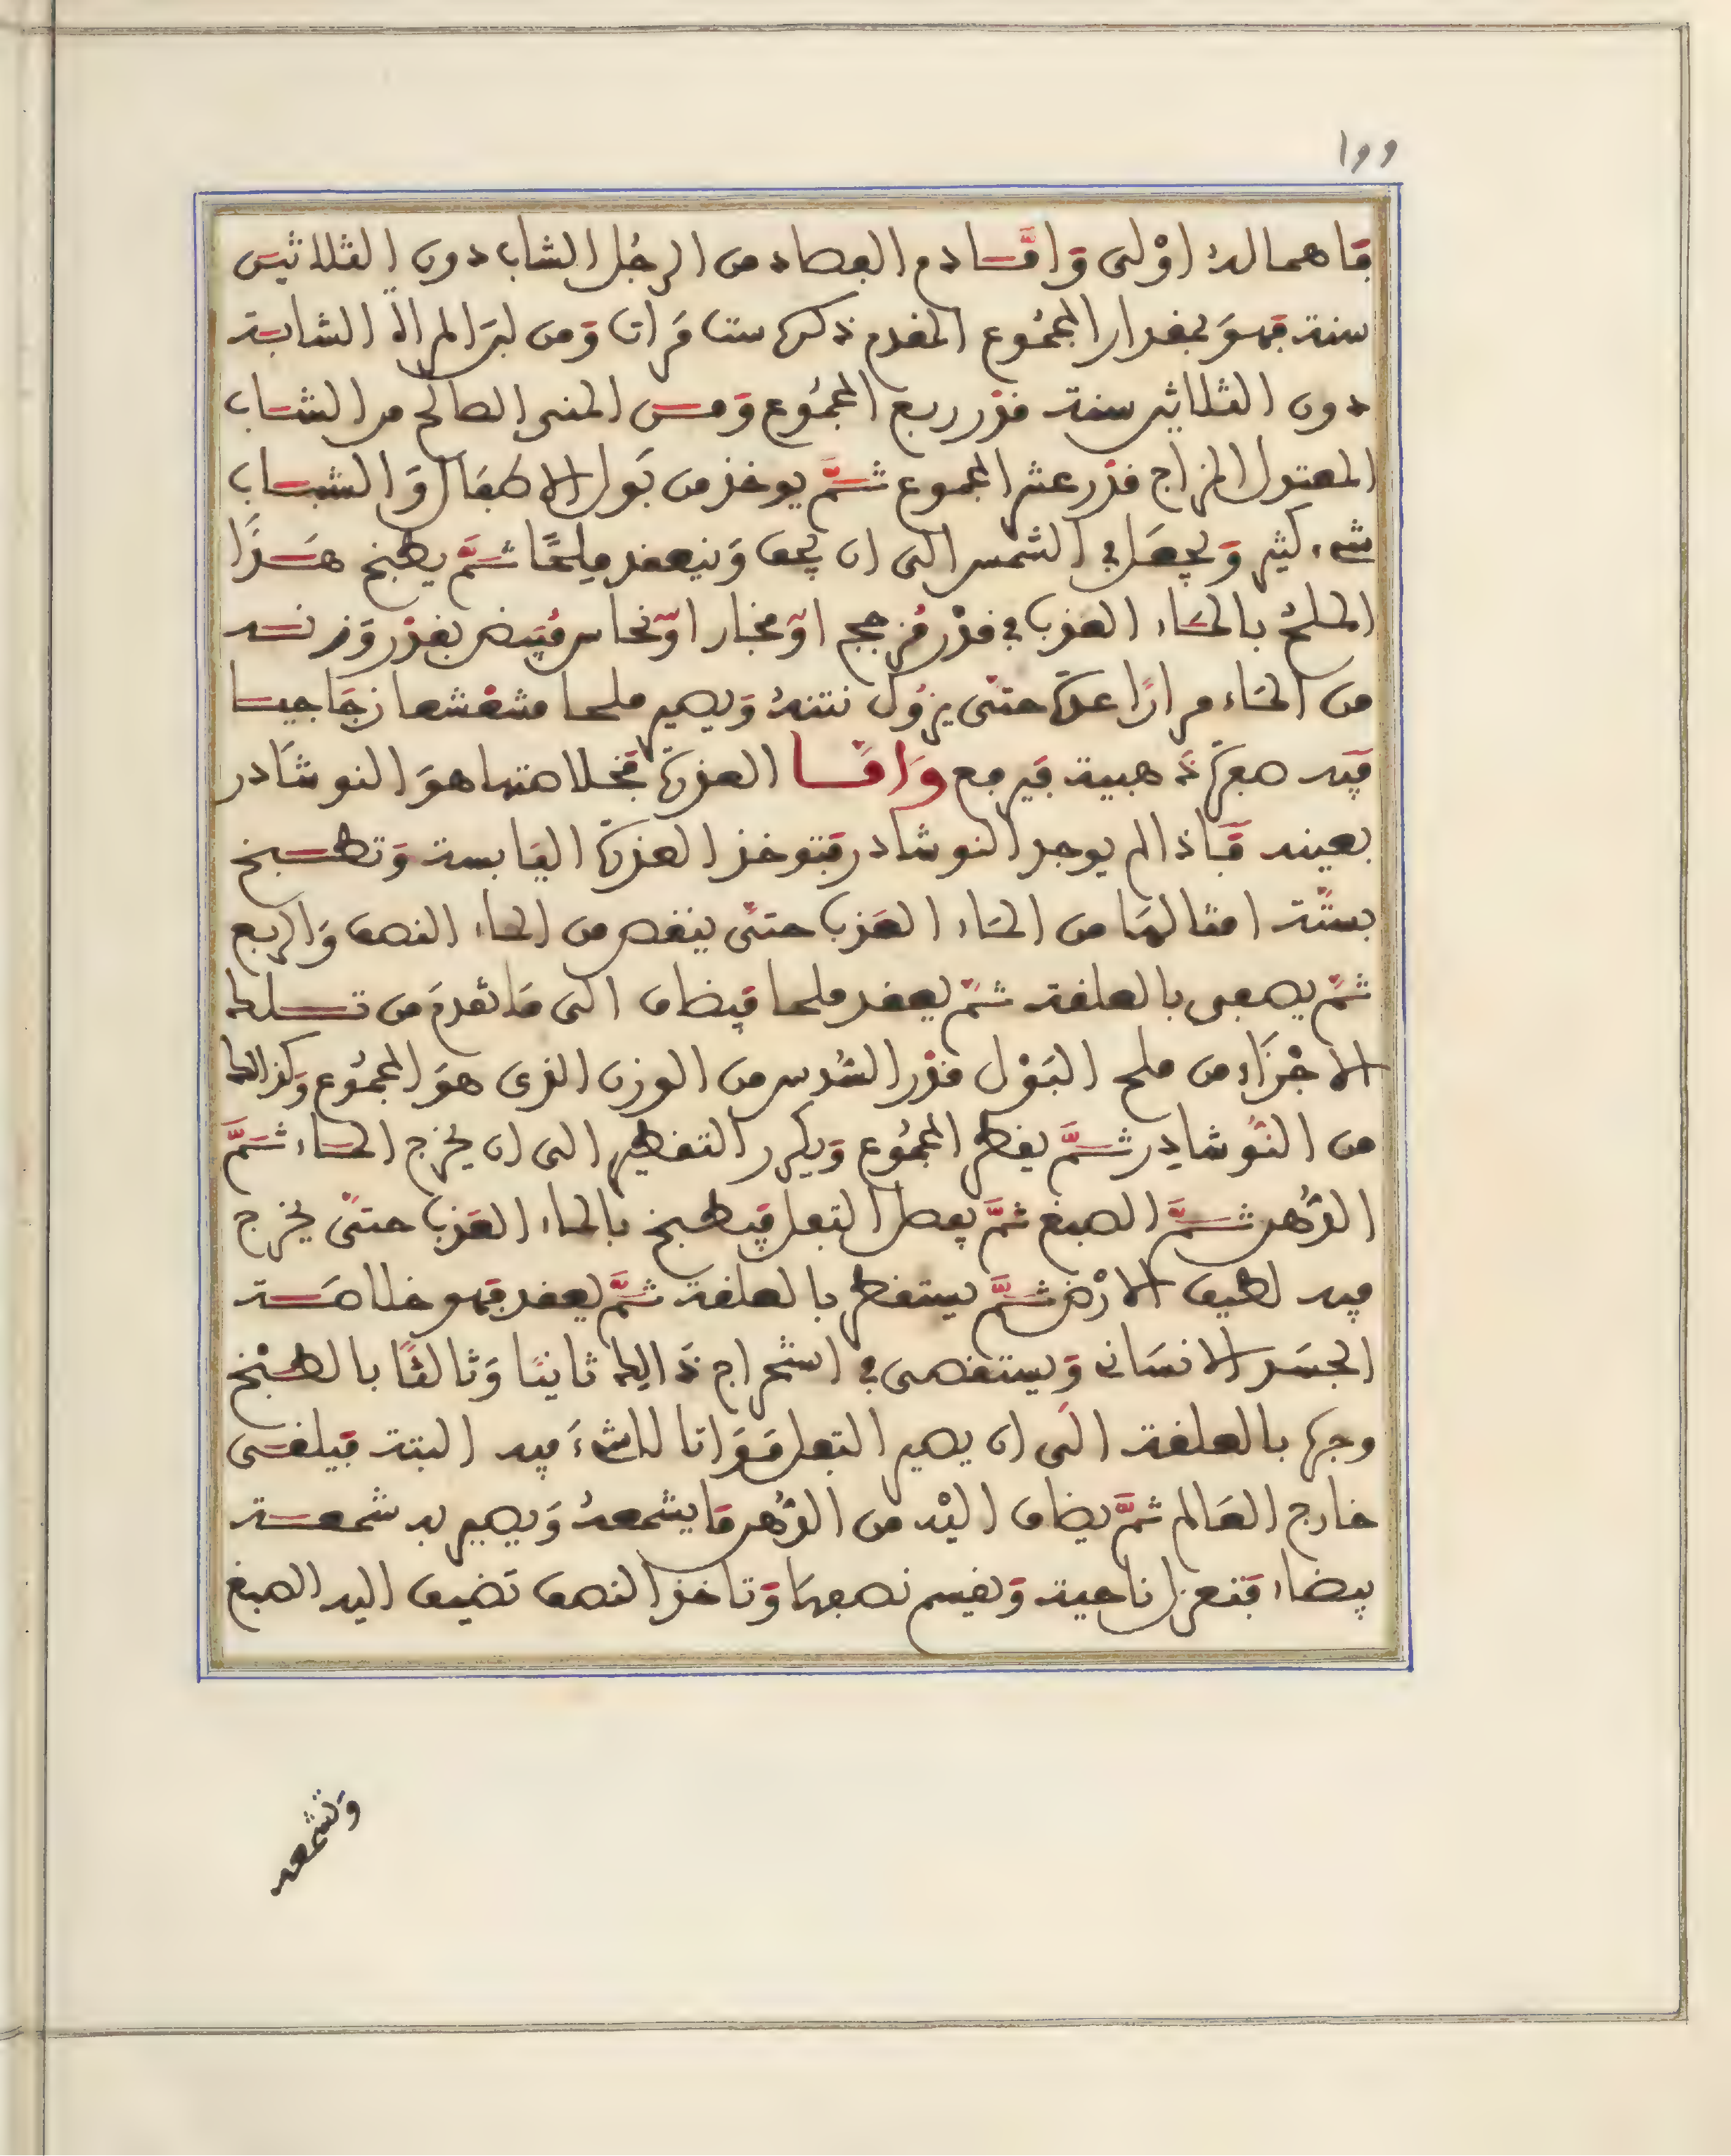 فاهماله اولى وَامَّا دم الفصاد من الرجُل الشاب دون الثلاثين
سنة فهوَ بمقدار المجمُوع المقدم ذكره ست مَرات وَمن لبَن المرأة الشابة
دون الثلاثين سنة قدر ربع المجمُوع وَمن المني الصالح من الشاب
المعتدل المزاج قدر عشر المجموع ثمَّ يوخذ من بَول الاطفَال وَالشباب
شيء كثير وَيجعَل في الشمس الى ان يجف وَينعقد ملحًا ثمَّ يطبخ هَذَا
الملحُ بالمَاء العذب في قدْر مُزججم اوْ فخار اوْ نحاس مُبيض بقدْر وَزنه
من المَاء مرارًا عدة حتى يزُول نتنهُ وَيصير ملحا مشعشعا زجَاجيا
فيه صفرة ذهبية فيرفع وَامَّا العذرة فخلاصتها هوَ النوشَادر
بعينه فَاذا لم يوجد النوشَادر فتوخذ العذرة اليَابسة وَتطبخ
بستة امثالهَا من المَاء العَذب حتى ينقص من الماء النصف وَالربع
ثمَّ يصفى بالعلقة ثمَّ يعقد ملحا فيضاف الى مَا تقدمَ من تلك
الاجْزَاء من ملح البَوْل قدْر السُدس من الوزن الذى هوَ المجمُوع وَكذالك
من النُوشادِر ثمَّ يقطر المجمُوع وَيكرر التقطير الى ان يخرج المَاء ثمَّ
الدُهن ثمَّ الصبغ ثمَّ يفصل التفل فيطبخ بالماء العَذب حتى يخرج
فيه لطيف الارْض ثمَّ يستقطر بالعلقة ثمَّ يعقد فهو خلاصَة
الجسَد الانسَانى وَيستقصى في استخراج ذَالك ثانيًا وَثالثًا بالطبْخ
وجره بالعلقة الَى ان يصير التفل مَوَاتا لاشىءَ فيه البتة فيلقى
خارج العَالم ثمَّ يضاف اليْه من الدُهن مَا يشمعهُ وَيصير به شمعة
بيضاء فتعزل ناحية وَيقسم نصفهَا وَتاخذ النصف تضيف اليه الصبغ
وَتشمعه